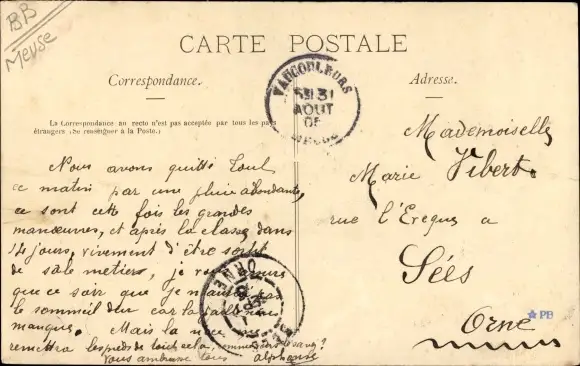 BB
Meuse
CARTE POSTALE
Correspondance.
Adresse.
La Correspondance au recto n'est pas acceptée par tous les pays
étrangers (Se renseigner à la Poste.)
VAUCOULEURS
31
AOUT
05
MEUSE
Nous avons quitté Toul
ce matin par une pluie abondante,
ce sont cette fois les grandes
manœuvres, et après la classe dans
14 jours, vivement d'être sorti
de sale métiers, je vous
que ce soir que je n'aurai pas
le sommeil dur car la paille nous
manques. Mais la
remettra les pieds de tout cela,
Vous embrasse tous alphonse
Mademoiselle
Marie Vibert
rue l'Eveque a
Sées
Orne
ORNE
PB